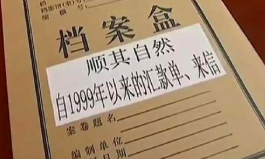 档案盒
顺其自然
自1999年以来的汇款单、来信
案卷题名
编制单位